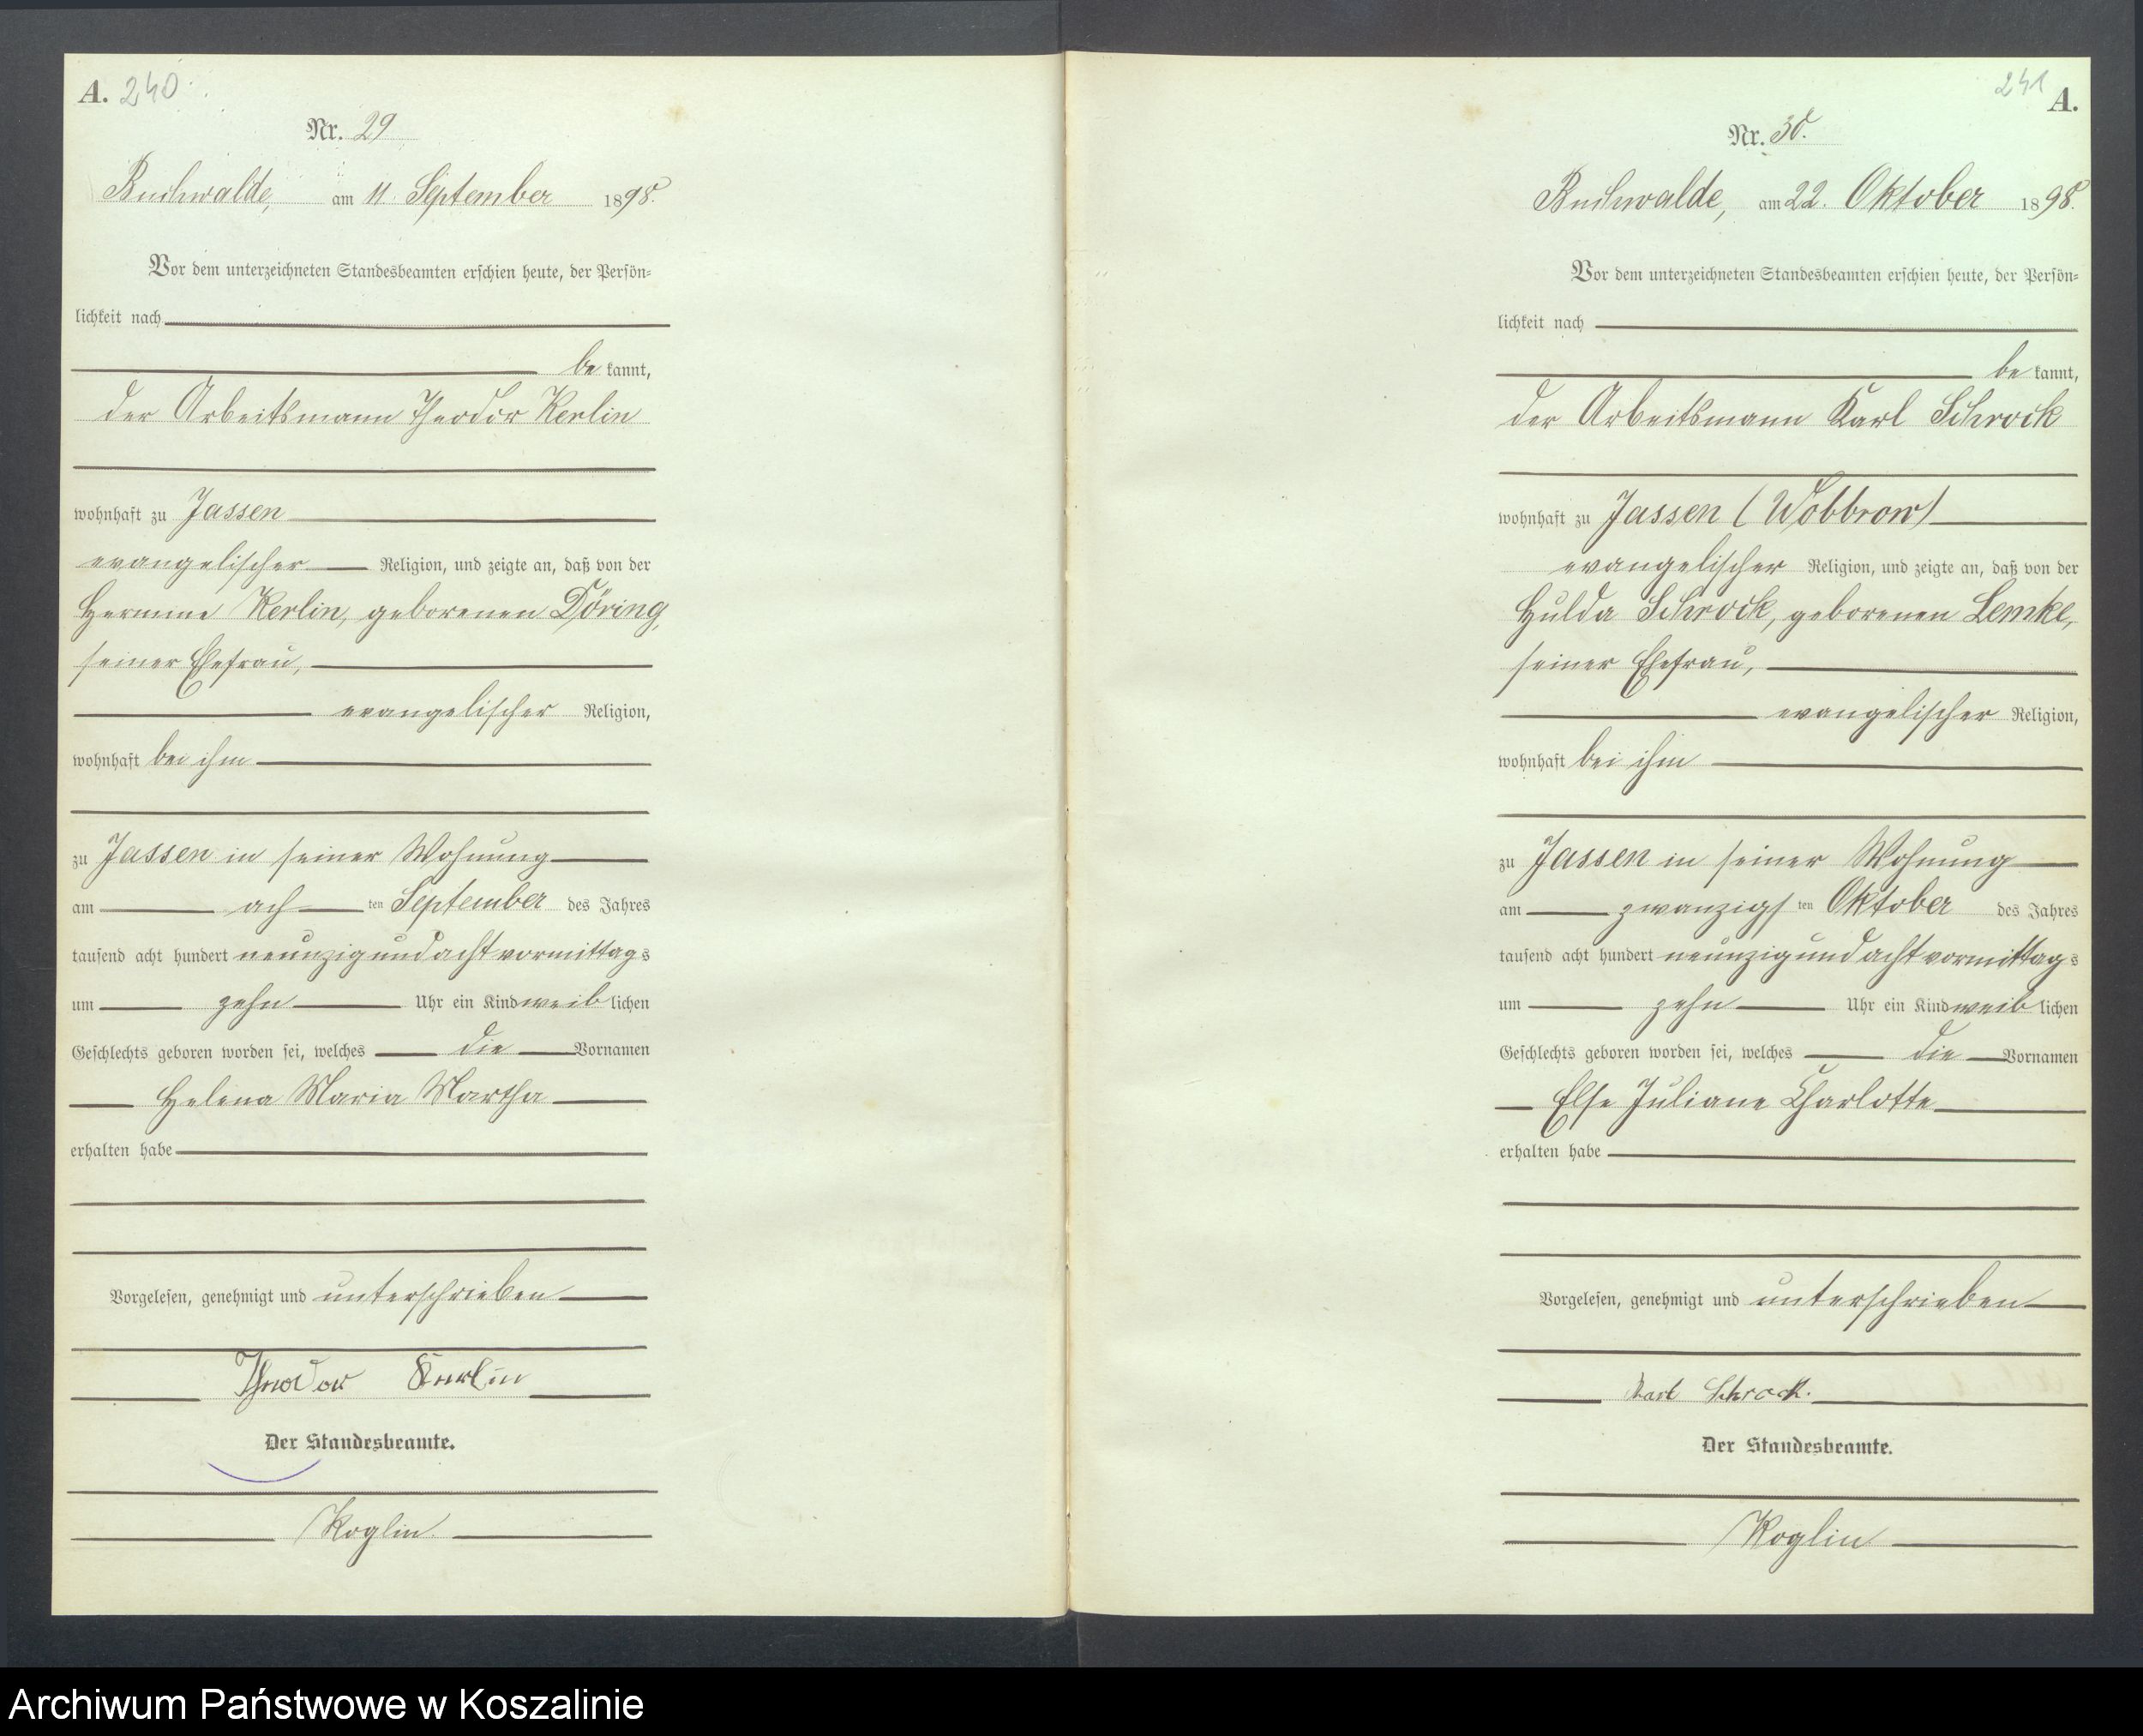 A. 240
Nr. 29
Buchwalde, am 11. September 1898.
Vor dem unterzeichneten Standesbeamten erschien heute, der Persön-
lichkeit nach
be kannt,
der Arbeitsmann Theodor Kerlin
wohnhaft zu Jassen
evangelischer Religion, und zeigte an, daß von der
Hermine Kerlin, geborenen Döring,
seiner Ehefrau,
evangelischer Religion,
wohnhaft bei ihm
zu Jassen in seiner Wohnung
am ach ten September des Jahres
tausend acht hundert neunzig und acht vormittags
um zehn Uhr ein Kind weiblichen
Geschlechts geboren worden sei, welches die Vornamen
Helena Maria Martha
erhalten habe
Vorgelesen, genehmigt und unterschrieben
Theodor Kerlin
Der Standesbeamte.
Koglin
241 A.
Nr. 30.
Buchwalde, am 22. Oktober 1898.
Vor dem unterzeichneten Standesbeamten erschien heute, der Persön-
lichkeit nach
be kannt,
der Arbeitsmann Karl Schrock
wohnhaft zu Jassen (Wobbrow)
evangelischer Religion, und zeigte an, daß von der
Hulda Schrock, geborenen Lemke,
seiner Ehefrau,
evangelischer Religion,
wohnhaft bei ihm
zu Jassen in seiner Wohnung
am zwanzigs ten Oktober des Jahres
tausend acht hundert neunzig und acht vormittags
um zehn Uhr ein Kind weiblichen
Geschlechts geboren worden sei, welches die Vornamen
Else Juliane Charlotte
erhalten habe
Vorgelesen, genehmigt und unterschrieben
Karl Schrock.
Der Standesbeamte.
Koglin
Archiwum Państwowe w Koszalinie